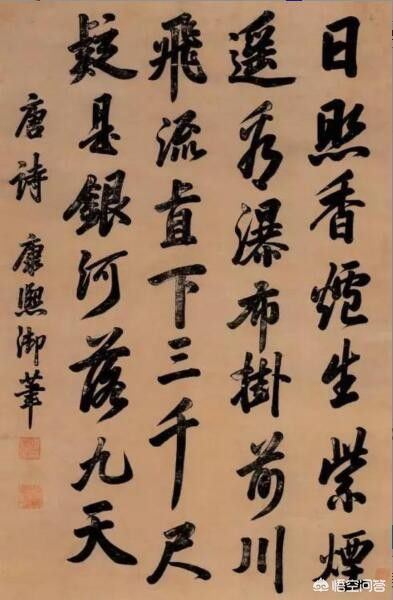 日照香爐生紫煙
遥看瀑布掛前川
飛流直下三千尺
疑是銀河落九天
唐詩 康熙御筆
悟空问答